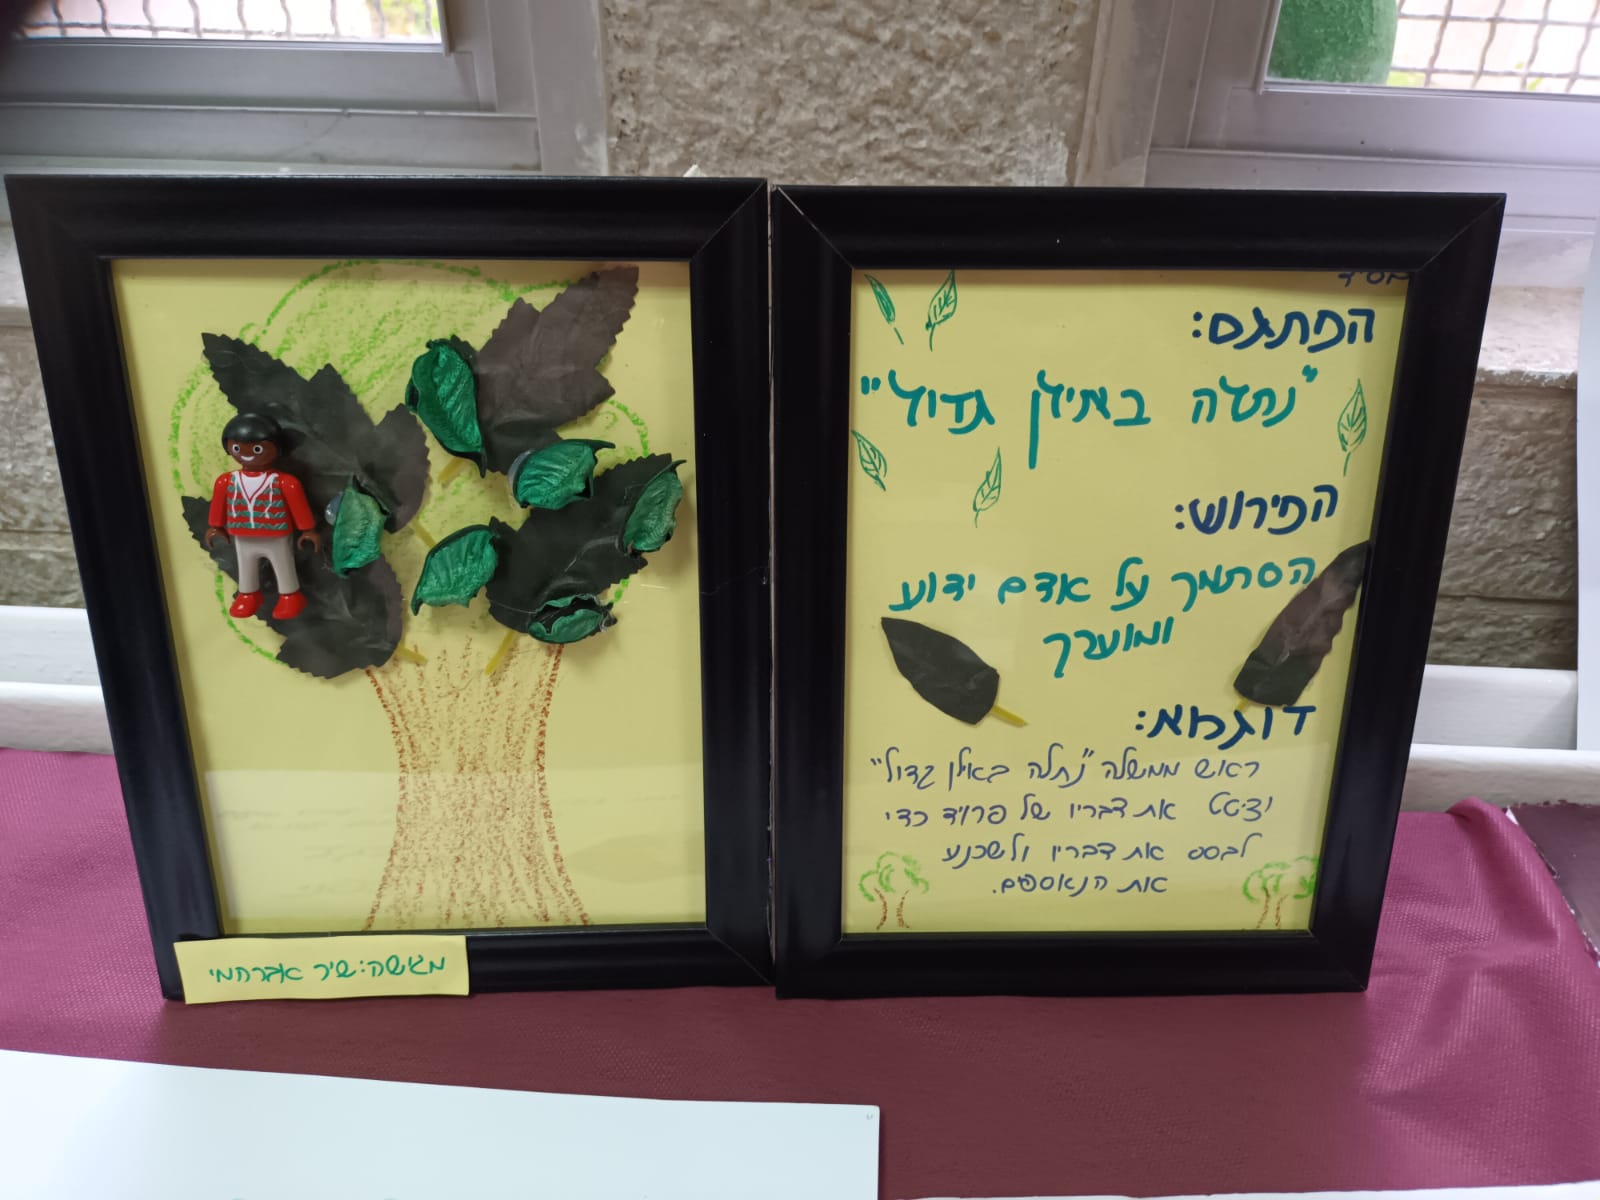 בס״ד
הפתגם:
"נתלה באילן גדול"
הפירוש:
הסתמך על אדם ידוע
ומוערך
דוגמא:
ראש ממשלה "נתלה באילן גדול"
וציטט את דבריו של פרויד כדי
לבסס את דבריו ולשכנע
את הנאספים.
מגישה: שיר אברהמי